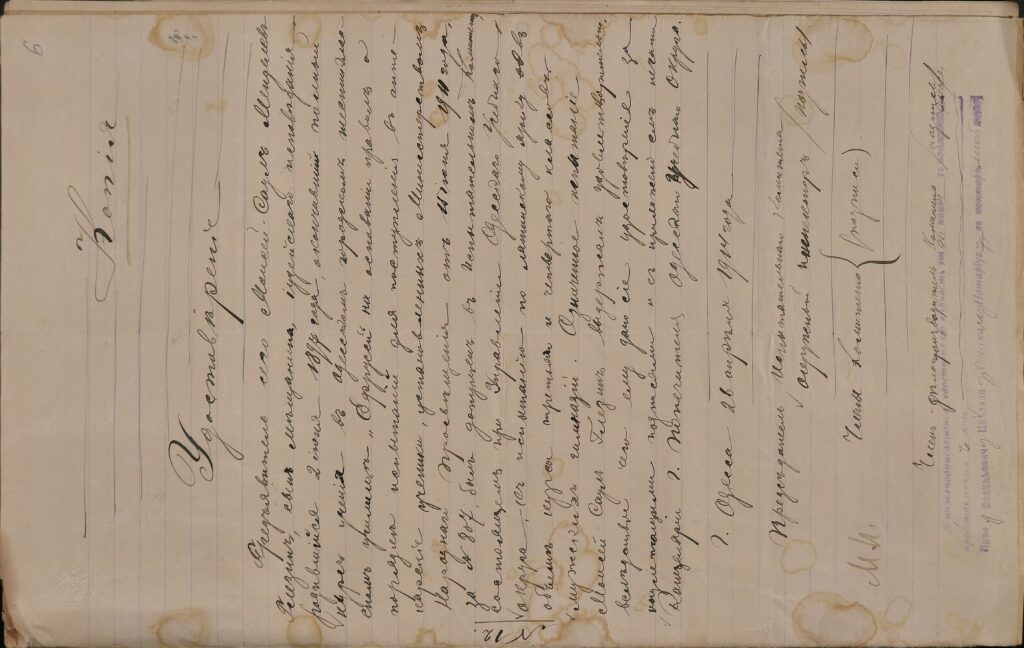 6
Копія
Удостовѣреніе
Предъявитель сего Мойсей Сауль
сынъ мѣщанина, іудейскаго исповѣданія
родившійся 2 іюня 1897 года, окончившій полный
курсъ ученія въ одесскомъ городскомъ
училищѣ „Ефруси" на основаніи правилъ о
порядкѣ испытаній для поступленія въ апте-
карскіе ученики, установленныхъ Министерствомъ
Народнаго Просвѣщенія отъ іюня 1911 года,
за № 307, былъ допущенъ въ Испытательномъ
состоящемъ при Управленіи Одесскаго Учебнаго
округа, къ испытанію по латинскому языку въ
объемѣ курса третьяго и четвертаго классовъ
мужскихъ гимназій. Означенное испытаніе
Мойсей-Сауль выдержалъ удовлетворительно
вслѣдствіе чего ему дано сіе удостовѣреніе за
надлежащими подписями и съ приложеніемъ печати
Канцеляріи г. Попечителя Одесскаго Учебнаго Округа.
г. Одесса 28 апрѣля 1914 года
Предсѣдатель Испытательнаго Комитета
окружный инспекторъ (подпись)
Члены Комитета { (подписи)
М.П.
Членъ-дѣлопроизводитель Комитета (подпись)